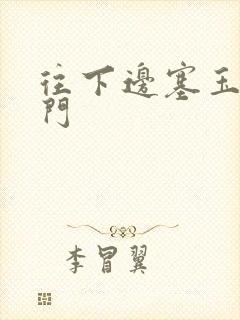 往下邊塞玉
門
李冒翼